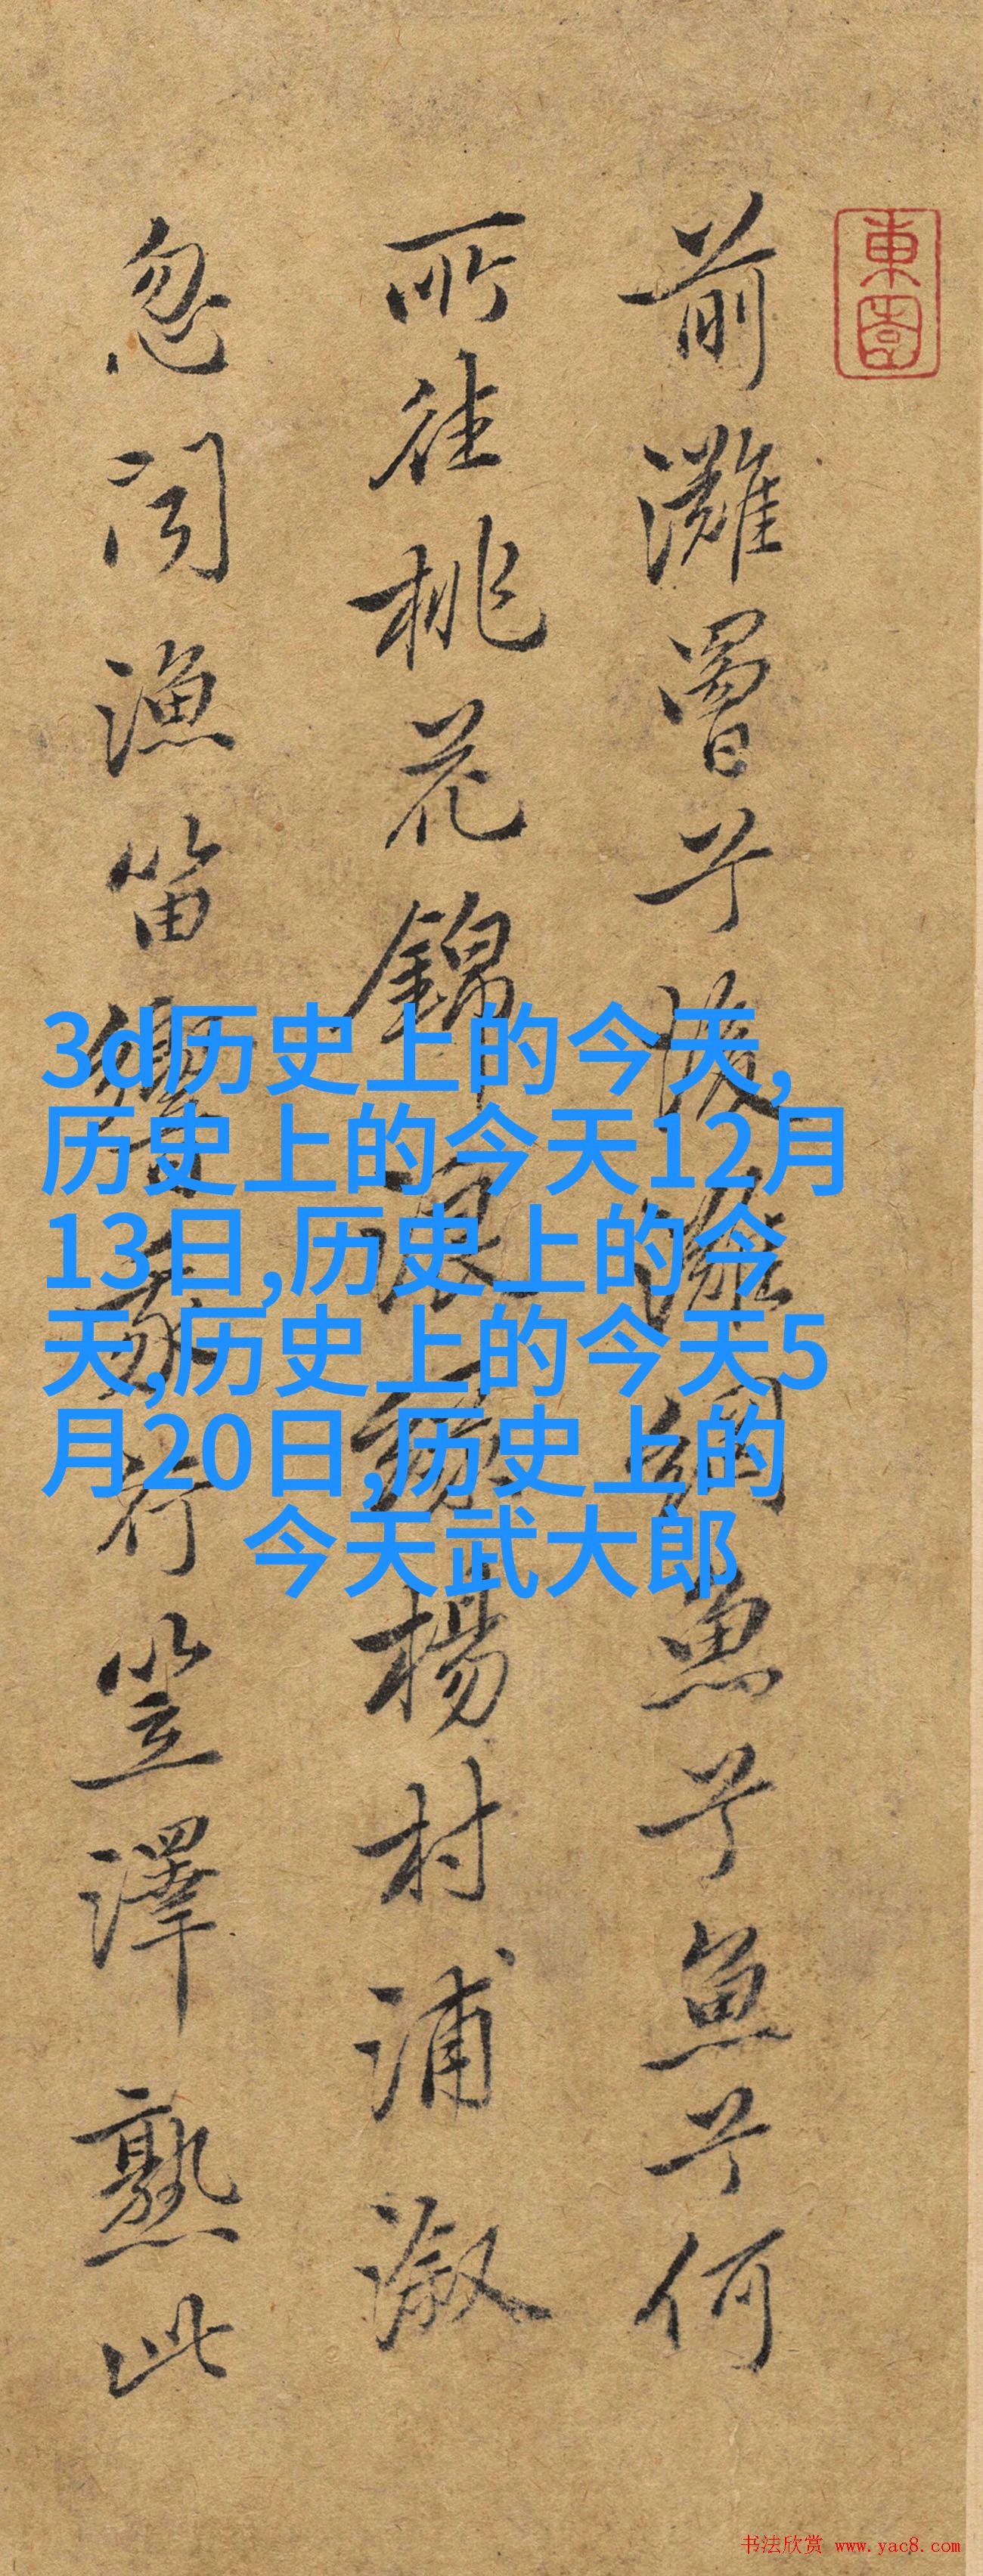 東園
前灘罾兮後灘網魚兮魚兮何
所往桃花錦浪綠楊村浦溆
忽聞漁笛響敲行笠澤熟此
3d历史上的今天,
历史上的今天12月
13日,历史上的今
天,历史上的今天5
月20日,历史上的
今天武大郎
书法欣赏 www.yac8.com